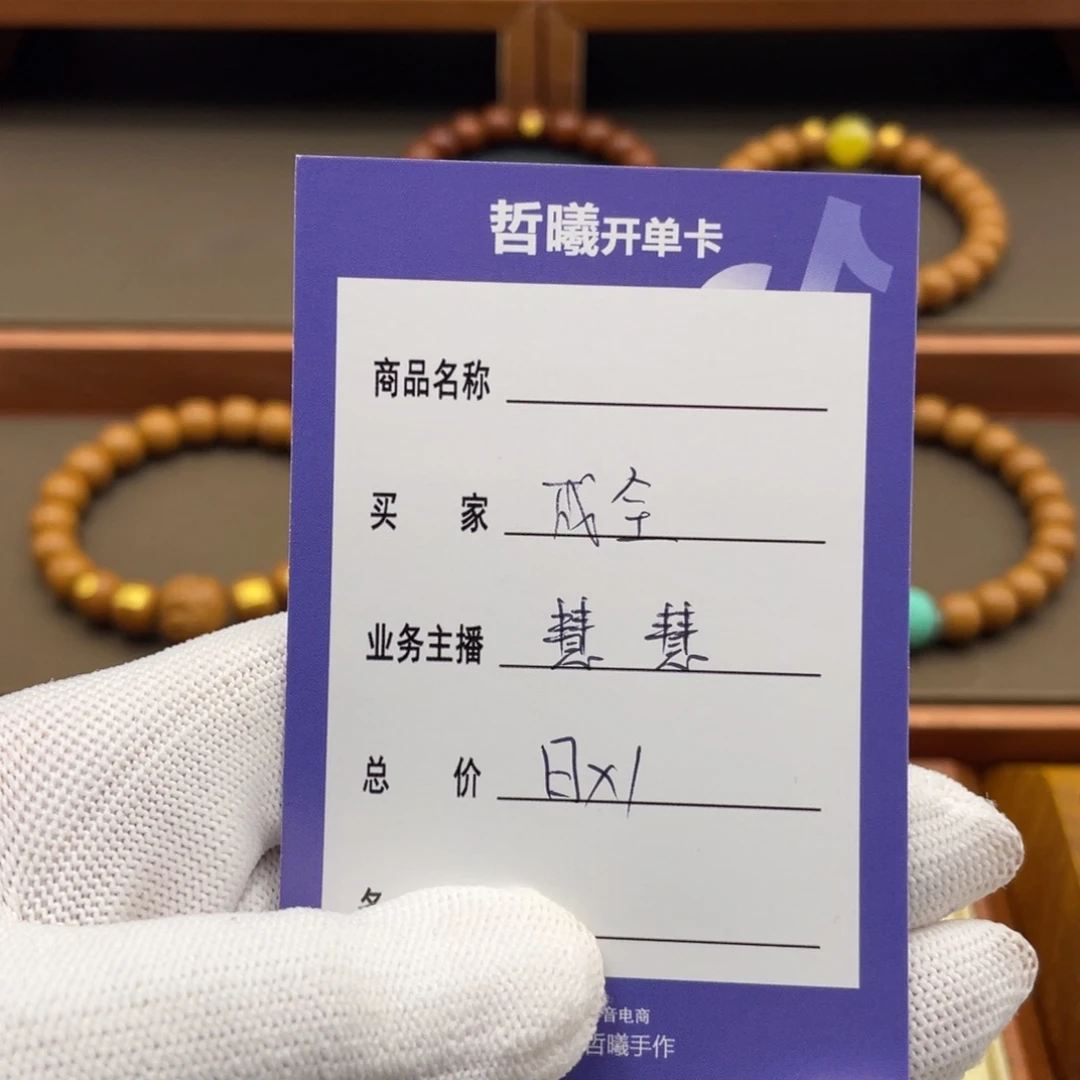 哲曦开单卡
商品名称
买家 成全
业务主播 慧慧
总价 日x1
音电商
哲曦手作